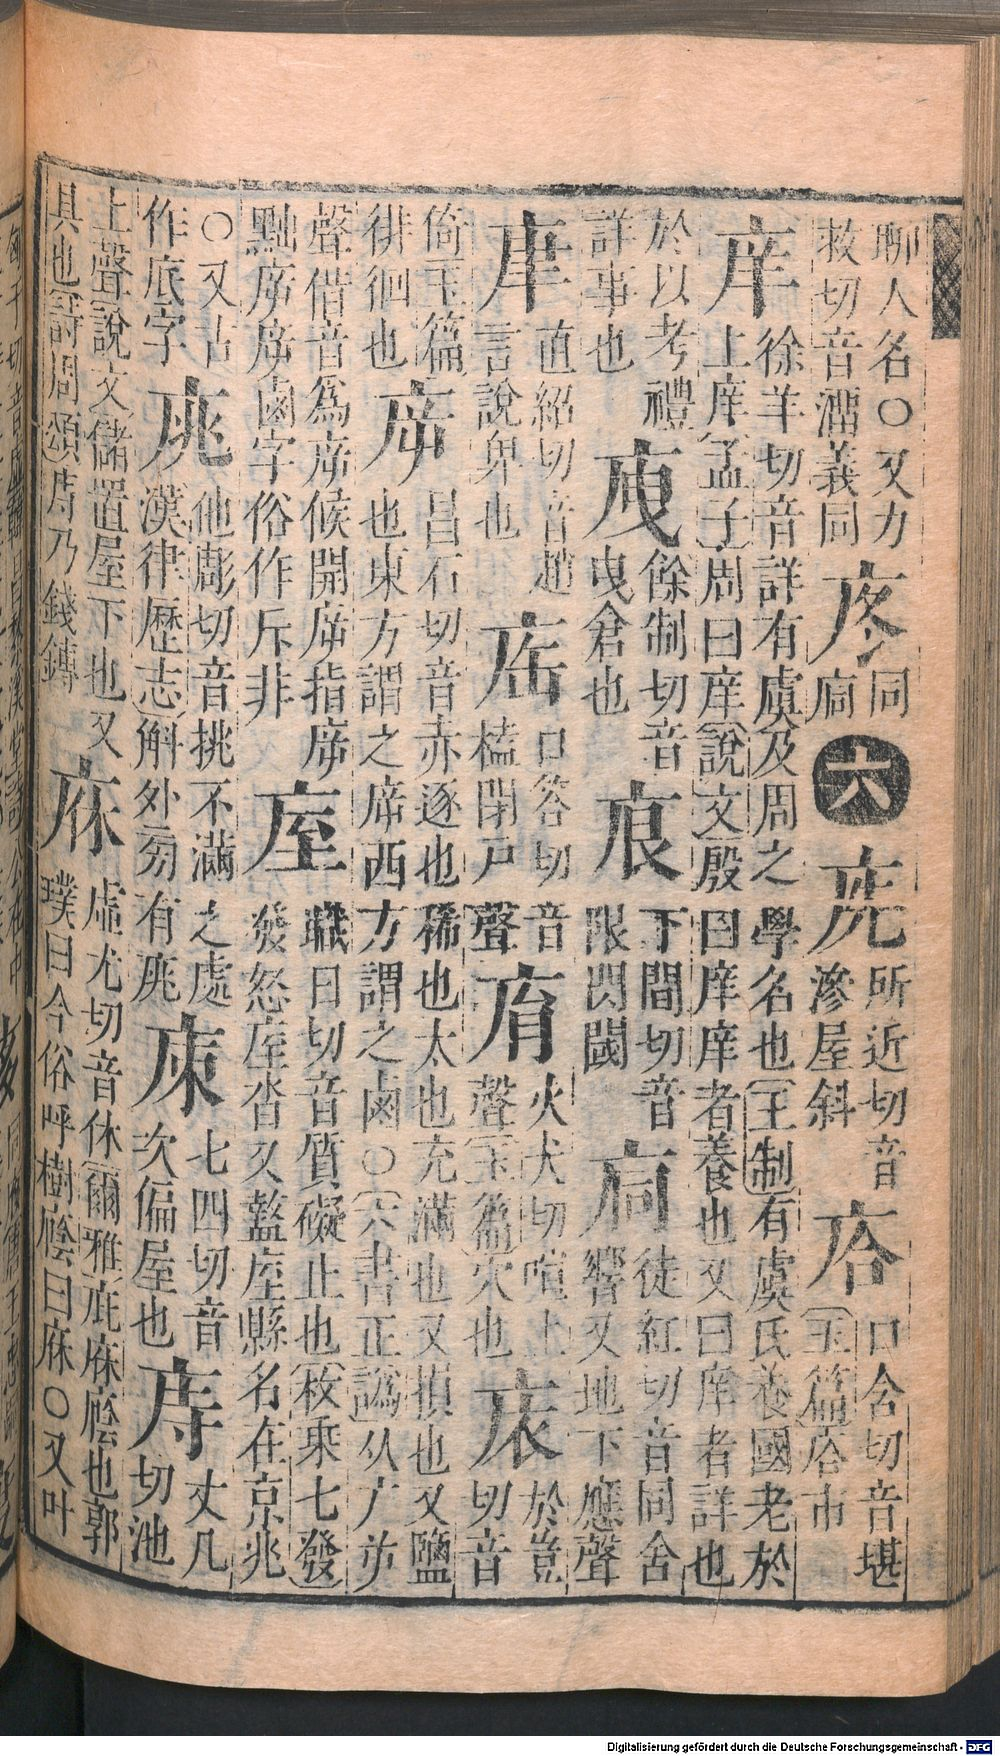 聊人名〇又力
救切音溜義同
同
六
所近切音
滲屋斜
口含切音堪
玉篇 市
庠
徐羊切音詳有虞及周之學名也王制有虞氏養國老於
上庠孟子周曰庠說文殷曰庠庠者養也又曰庠者詳也
於以考禮
詳事也
餘制切音
曳倉也
下間切音
限閃閾
徒紅切音同舍
響又地下應聲
直紹切音趙
言說卑也
口答切音
榼閉戸聲
火犬切喧上
聲玉篇穴也
庡
於豈
切音
倚玉篇
徘徊也
㡿
昌石切音赤逐也稀也太也充滿也又損也又鹽
也東方謂之㡿西方謂之鹵〇六書正譌从广屰
聲借音為㡿候開㡿指㡿
㸃㡿㡿鹵字俗作斥非
庢
職日切音質礙止也枚乗七發
發怒庢沓又盩庢縣名在京兆
〇又古
作底字
庣
他彫切音挑不滿之處
漢律歷志斛外旁有庣
七四切音
次偏屋也
庤
丈几
切池
上聲說文儲置屋下也又
具也詩周頌庤乃錢鎛
庥
虛尤切音休爾雅庇庥廕也郭
璞曰今俗呼樹廕曰庥〇又叶
Digitalisierung gefördert durch die Deutsche Forschungsgemeinschaft - DFG